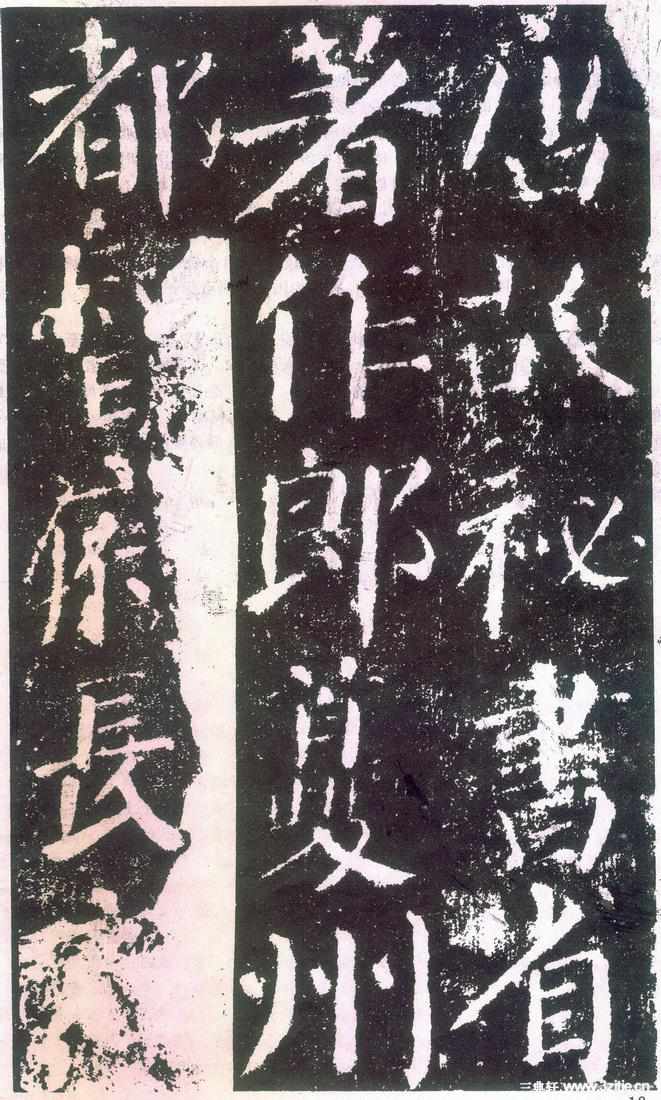 唐故祕書省
著作郎夔州
都督府長
www.3zitie.cn